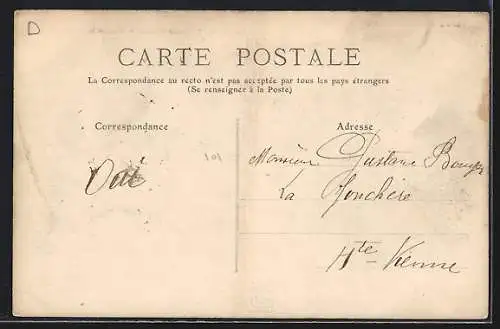 D
CARTE POSTALE
La Correspondance au recto n'est pas acceptée par tous les pays étrangers
(Se renseigner à la Poste)
Correspondance
Adresse
101
Monsieur Gustave
La Jonchère
Hte-Vienne